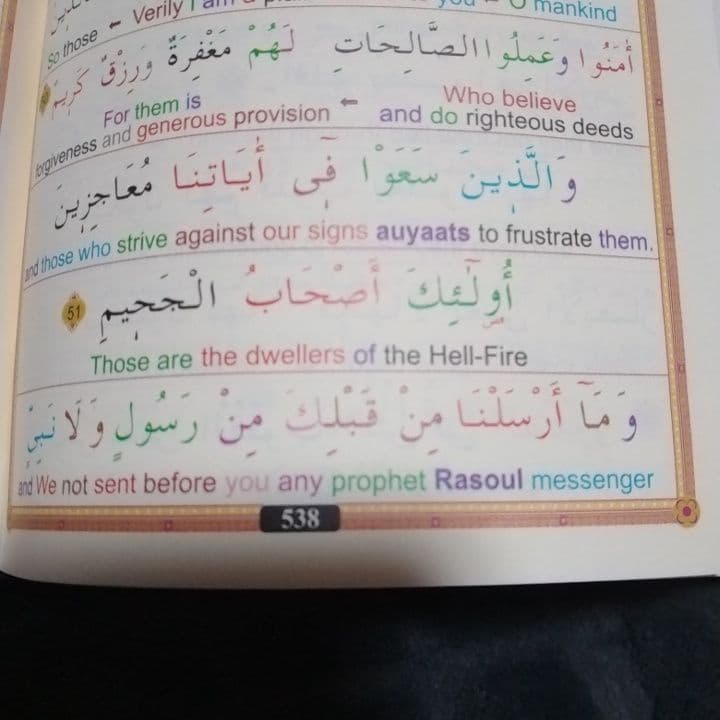 So those ← Verily I am
you
O mankind
أَمَنُوا وَعَمِلُوا الصَّالِحَاتِ لَهُمْ مَغْفِرَةٌ وَرِزْقٌ كَرِيمٌ
For them is ← Who believe
forgiveness and generous provision and do righteous deeds
وَالَّذِينَ سَعَوْا فِي أَيَاتِنَا مُعَاجِزِينَ
and those who strive against our signs auyaats to frustrate them.
أُولَٰئِكَ أَصْحَابُ الْجَحِيمِ 51
Those are the dwellers of the Hell-Fire
وَمَآ أَرْسَلْنَا مِنْ قَبْلِكَ مِنْ رَسُولٍ وَلَا نَبِيٍّ
and We not sent before you any prophet Rasoul messenger
538